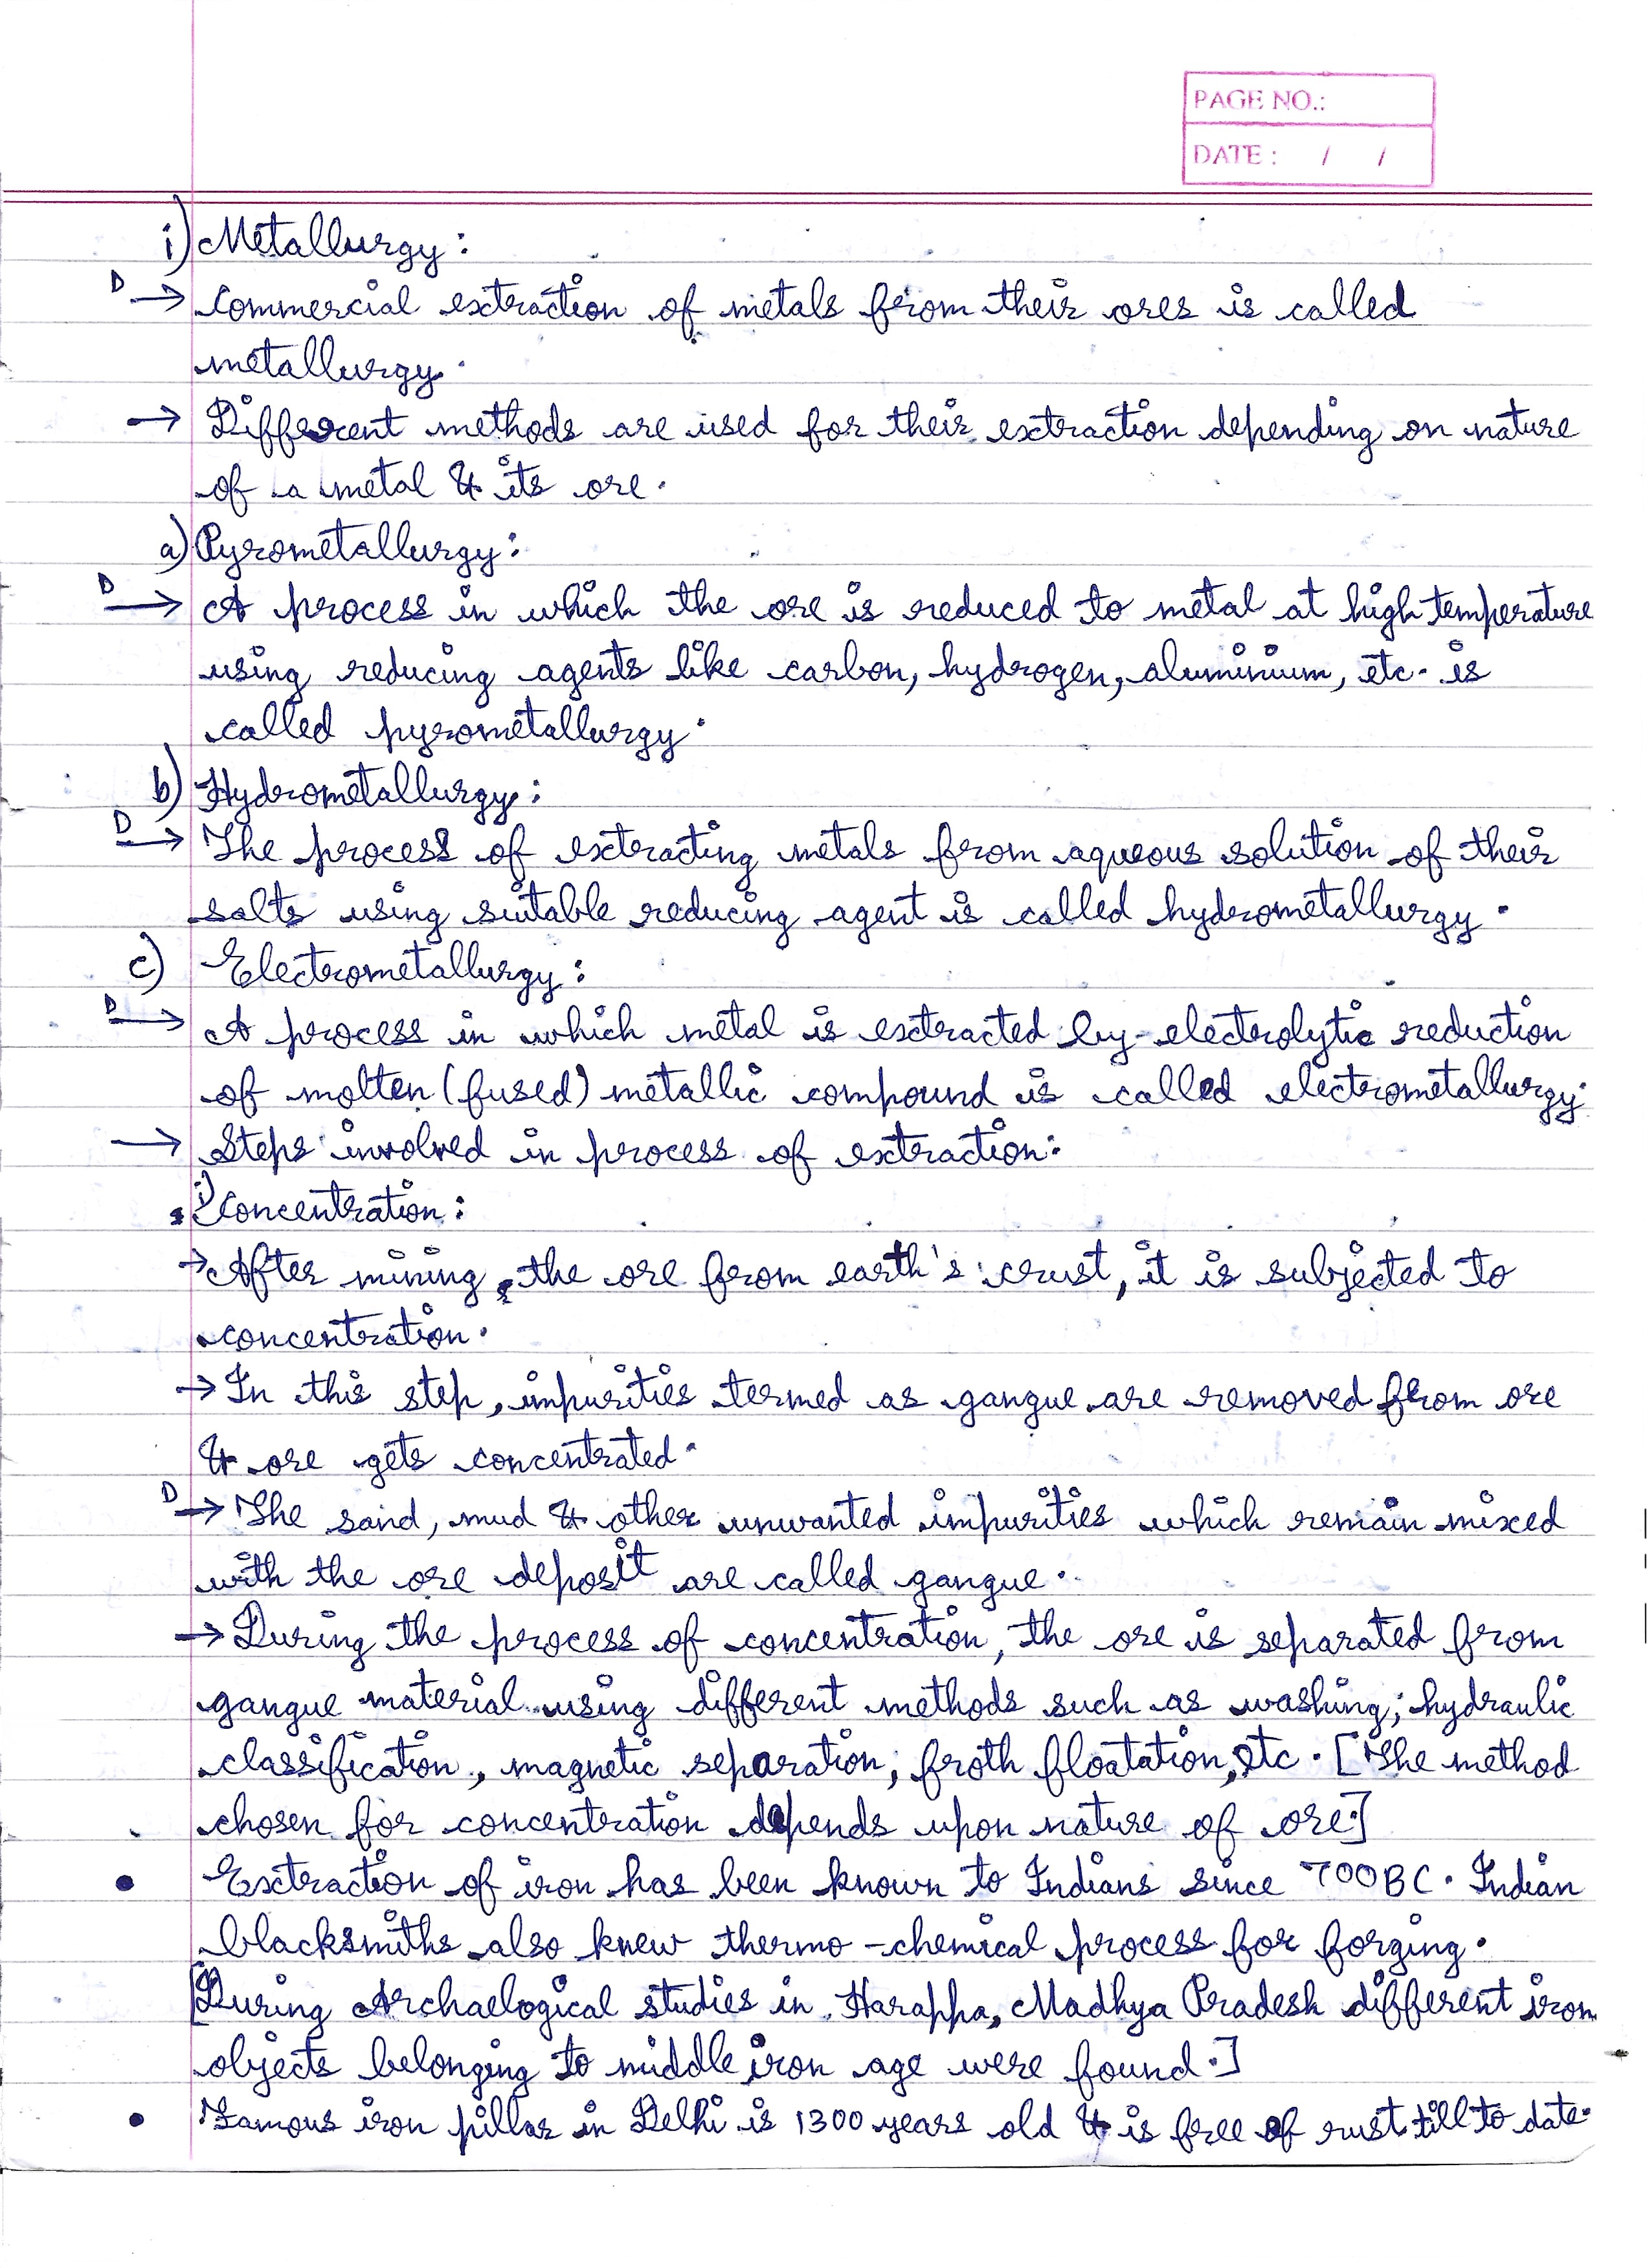 PAGE NO.:
DATE : / /
i) Metallurgy :
D → Commercial extraction of metals from their ores is called
metallurgy.
→ Different methods are used for their extraction depending on nature
of a metal & its ore.
a) Pyrometallurgy :
D → A process in which the ore is reduced to metal at high temperature
using reducing agents like carbon, hydrogen, aluminium, etc. is
called pyrometallurgy.
b) Hydrometallurgy :
D → The process of extracting metals from aqueous solution of their
salts using suitable reducing agent is called hydrometallurgy.
c) Electrometallurgy :
D → A process in which metal is extracted by electrolytic reduction
of molten (fused) metallic compound is called electrometallurgy.
→ Steps involved in process of extraction:
i) Concentration :
→ After mining, the ore from earth's crust, it is subjected to
concentration.
→ In this step, impurities termed as gangue are removed from ore
& ore gets concentrated.
D → The sand, mud & other unwanted impurities which remain mixed
with the ore deposit are called gangue.
→ During the process of concentration, the ore is separated from
gangue material using different methods such as washing, hydraulic
classification, magnetic separation, froth floatation, etc. [The method
chosen for concentration depends upon nature of ore.]
• Extraction of iron has been known to Indians since 700BC. Indian
blacksmiths also knew thermo-chemical process for forging.
[During Archaelogical studies in Harappa, Madhya Pradesh different iron
objects belonging to middle iron age were found.]
• Famous iron pillar in Delhi is 1300 years old & is free of rust till to date.